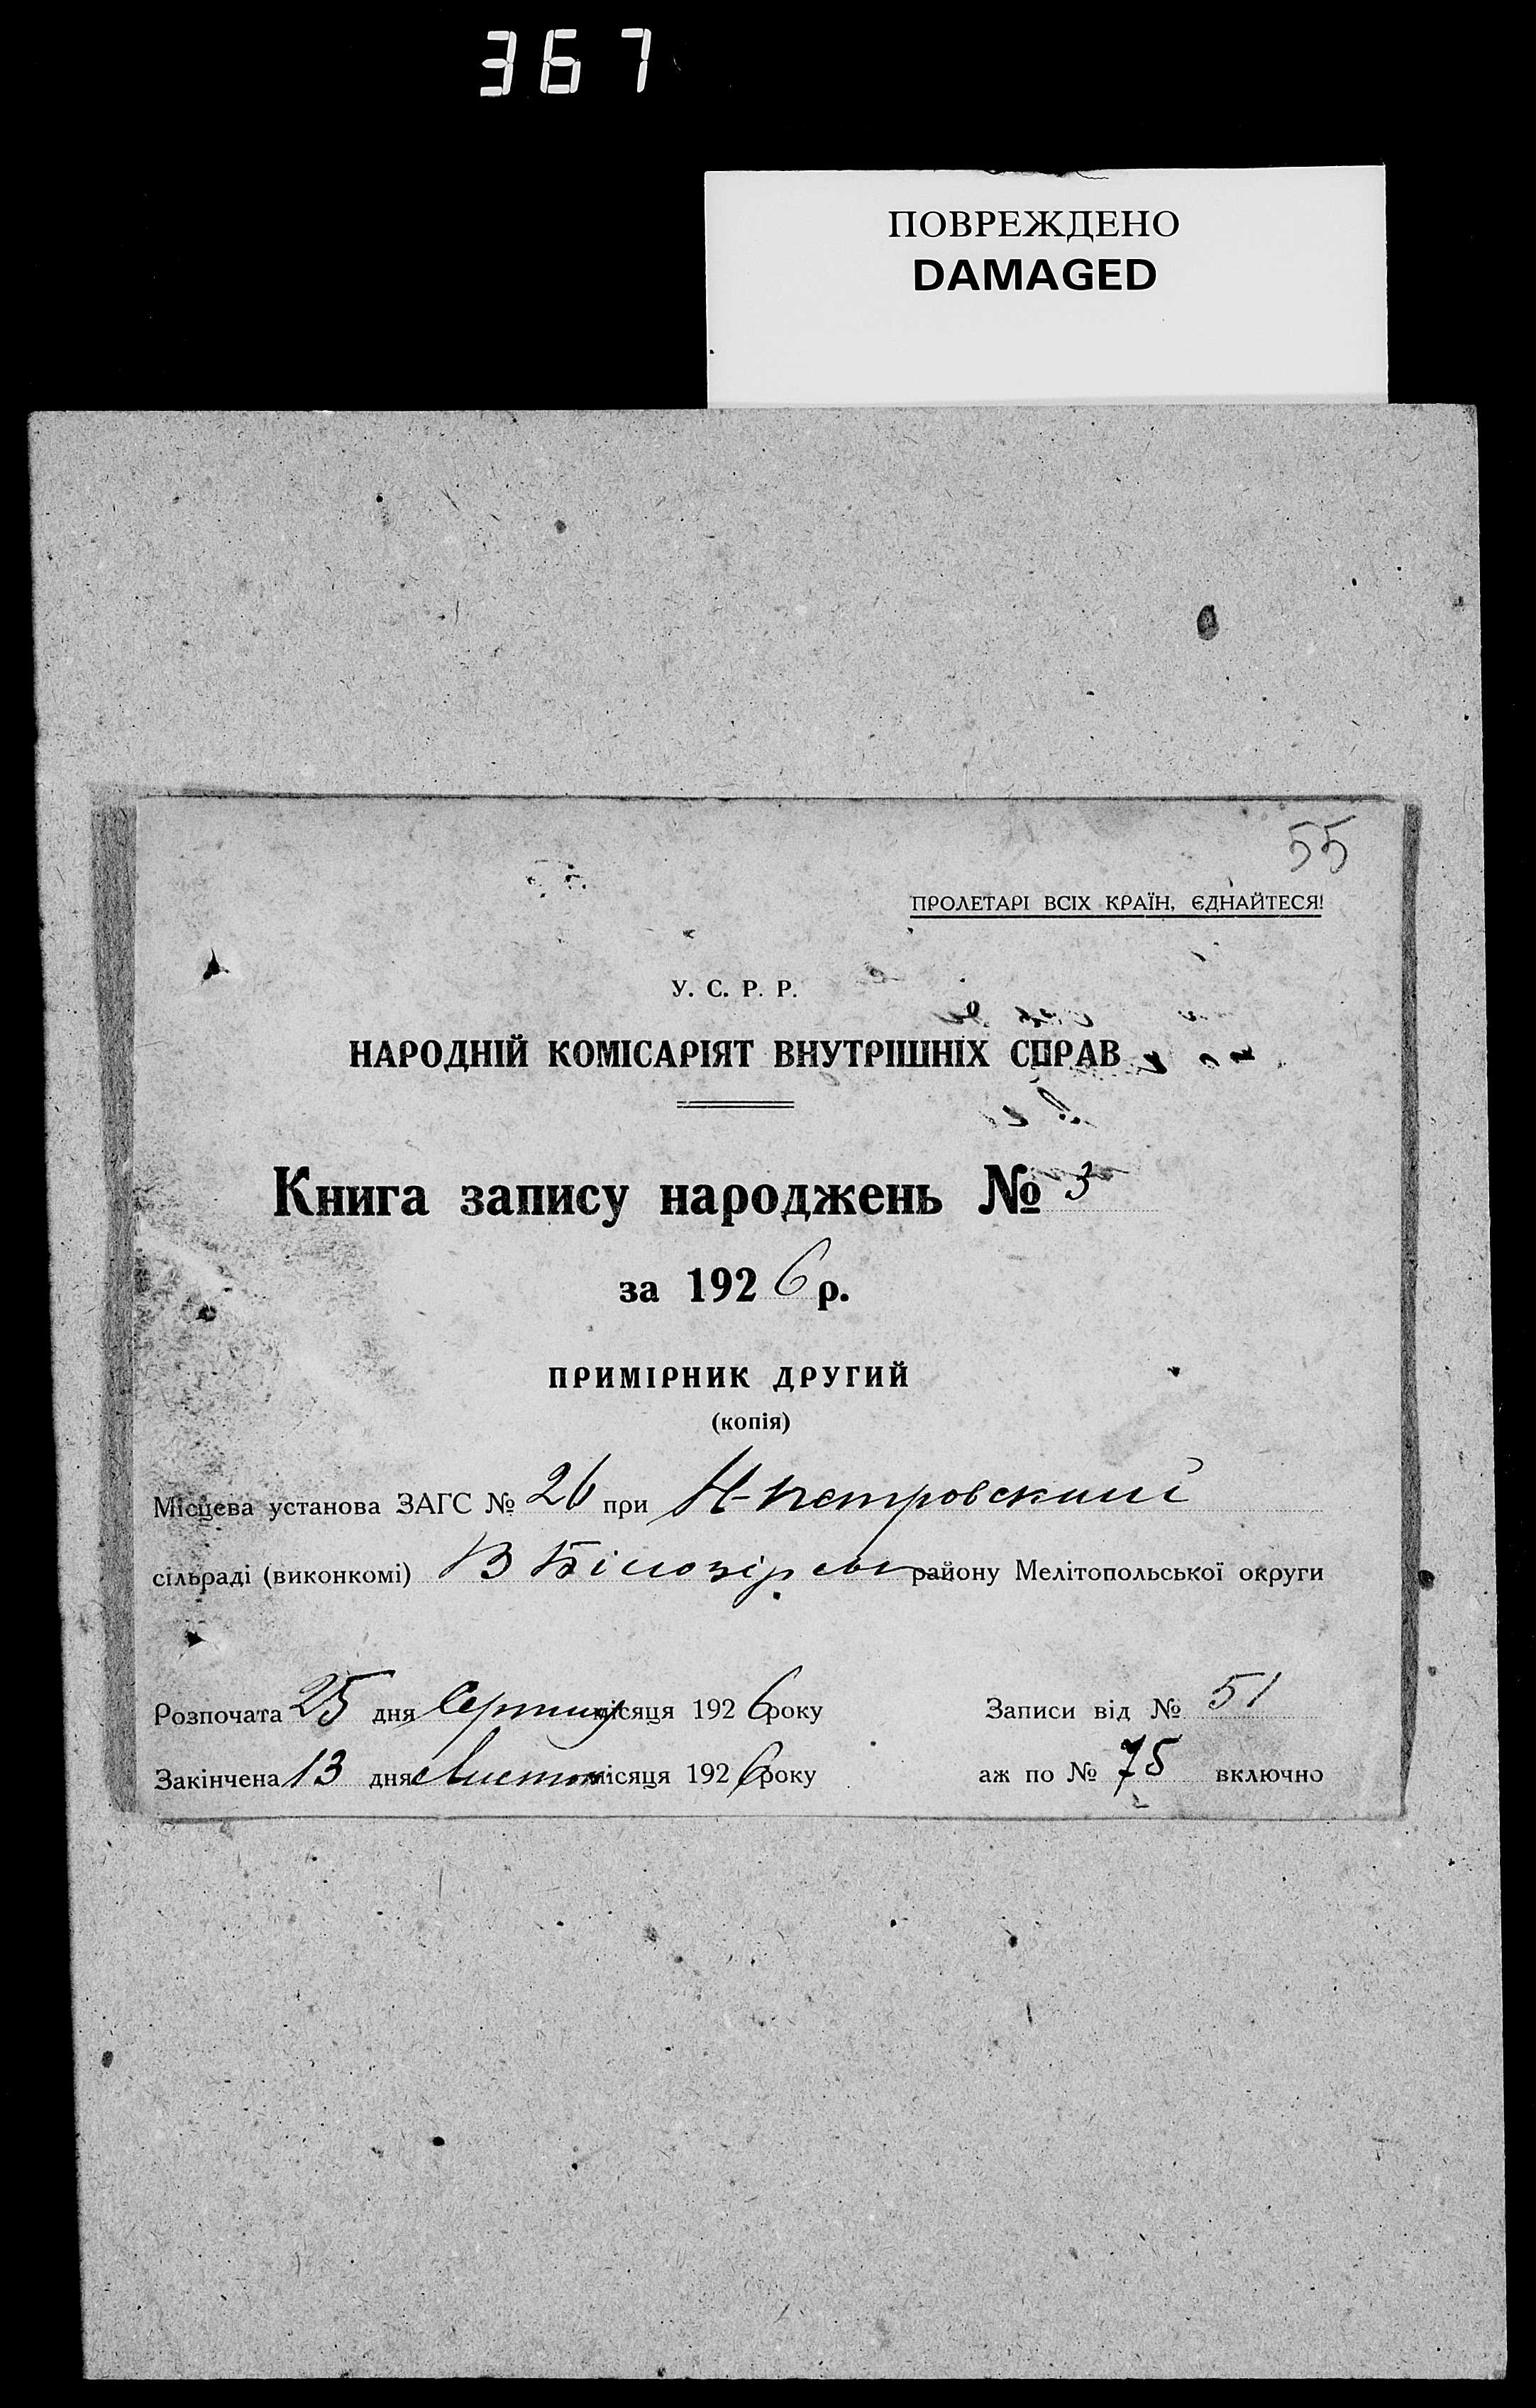 367
ПОВРЕЖДЕНО
DAMAGED
55
ПРОЛЕТАРІ ВСІХ КРАЇН, ЄДНАЙТЕСЯ!
У. С. Р. Р.
НАРОДНІЙ КОМІСАРІЯТ ВНУТРІШНІХ СПРАВ
Книга запису народжень № 3
за 1926 р.
ПРИМІРНИК ДРУГИЙ
(копія)
Місцева установа ЗАГС № 26 при Н-петровский
сільраді (виконкомі) В Білозірськ району Мелітопольської округи
Розпочата 25 дня Серпня місяця 1926 року Записи від № 51
Закінчена 13 дня Листоп місяця 1926 року аж по № 75 включно